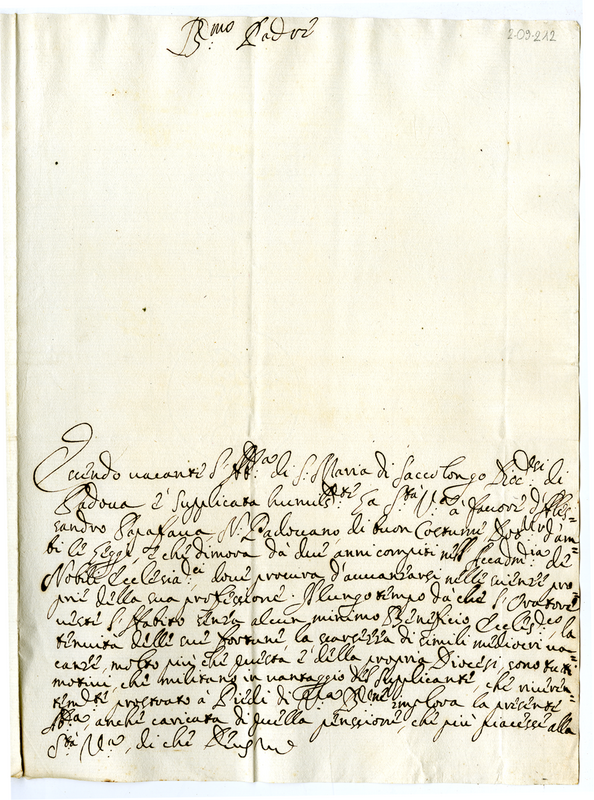 2.09.212
B.mo Padre
Essendo vacante l'Abb.a di S. Maria di Saccolongo Dioc.esi di
Padova è supplicata humilm.te la S.tà V.a à favore d'Ales=
sandro Papafava N. Padovano di buon Costume Dott.
bi le Leggi, e che dimora da due anni compiti nell' Accad.mia de
Nobili Eccles. dove procura d'avvanzarsi nelle scienze pro
prie della sua professione. Il lungo tempo da che l'Oratore
veste l'habito senza alcun minimo Beneficio Eccles.co, la
tenuità delle sue fortune, la scarsezza di simili mediocri va
canze, molto più che questa è della propria Diocesi, sono tutti
motivi, che militano in vantaggio del supplicante, che riveren
tem.te prostrato à Piedi di V.ra B.ne implora la presente
Abb.a, anche caricata di quella pensione, che più piacesse alla
S.tà V.a, di che